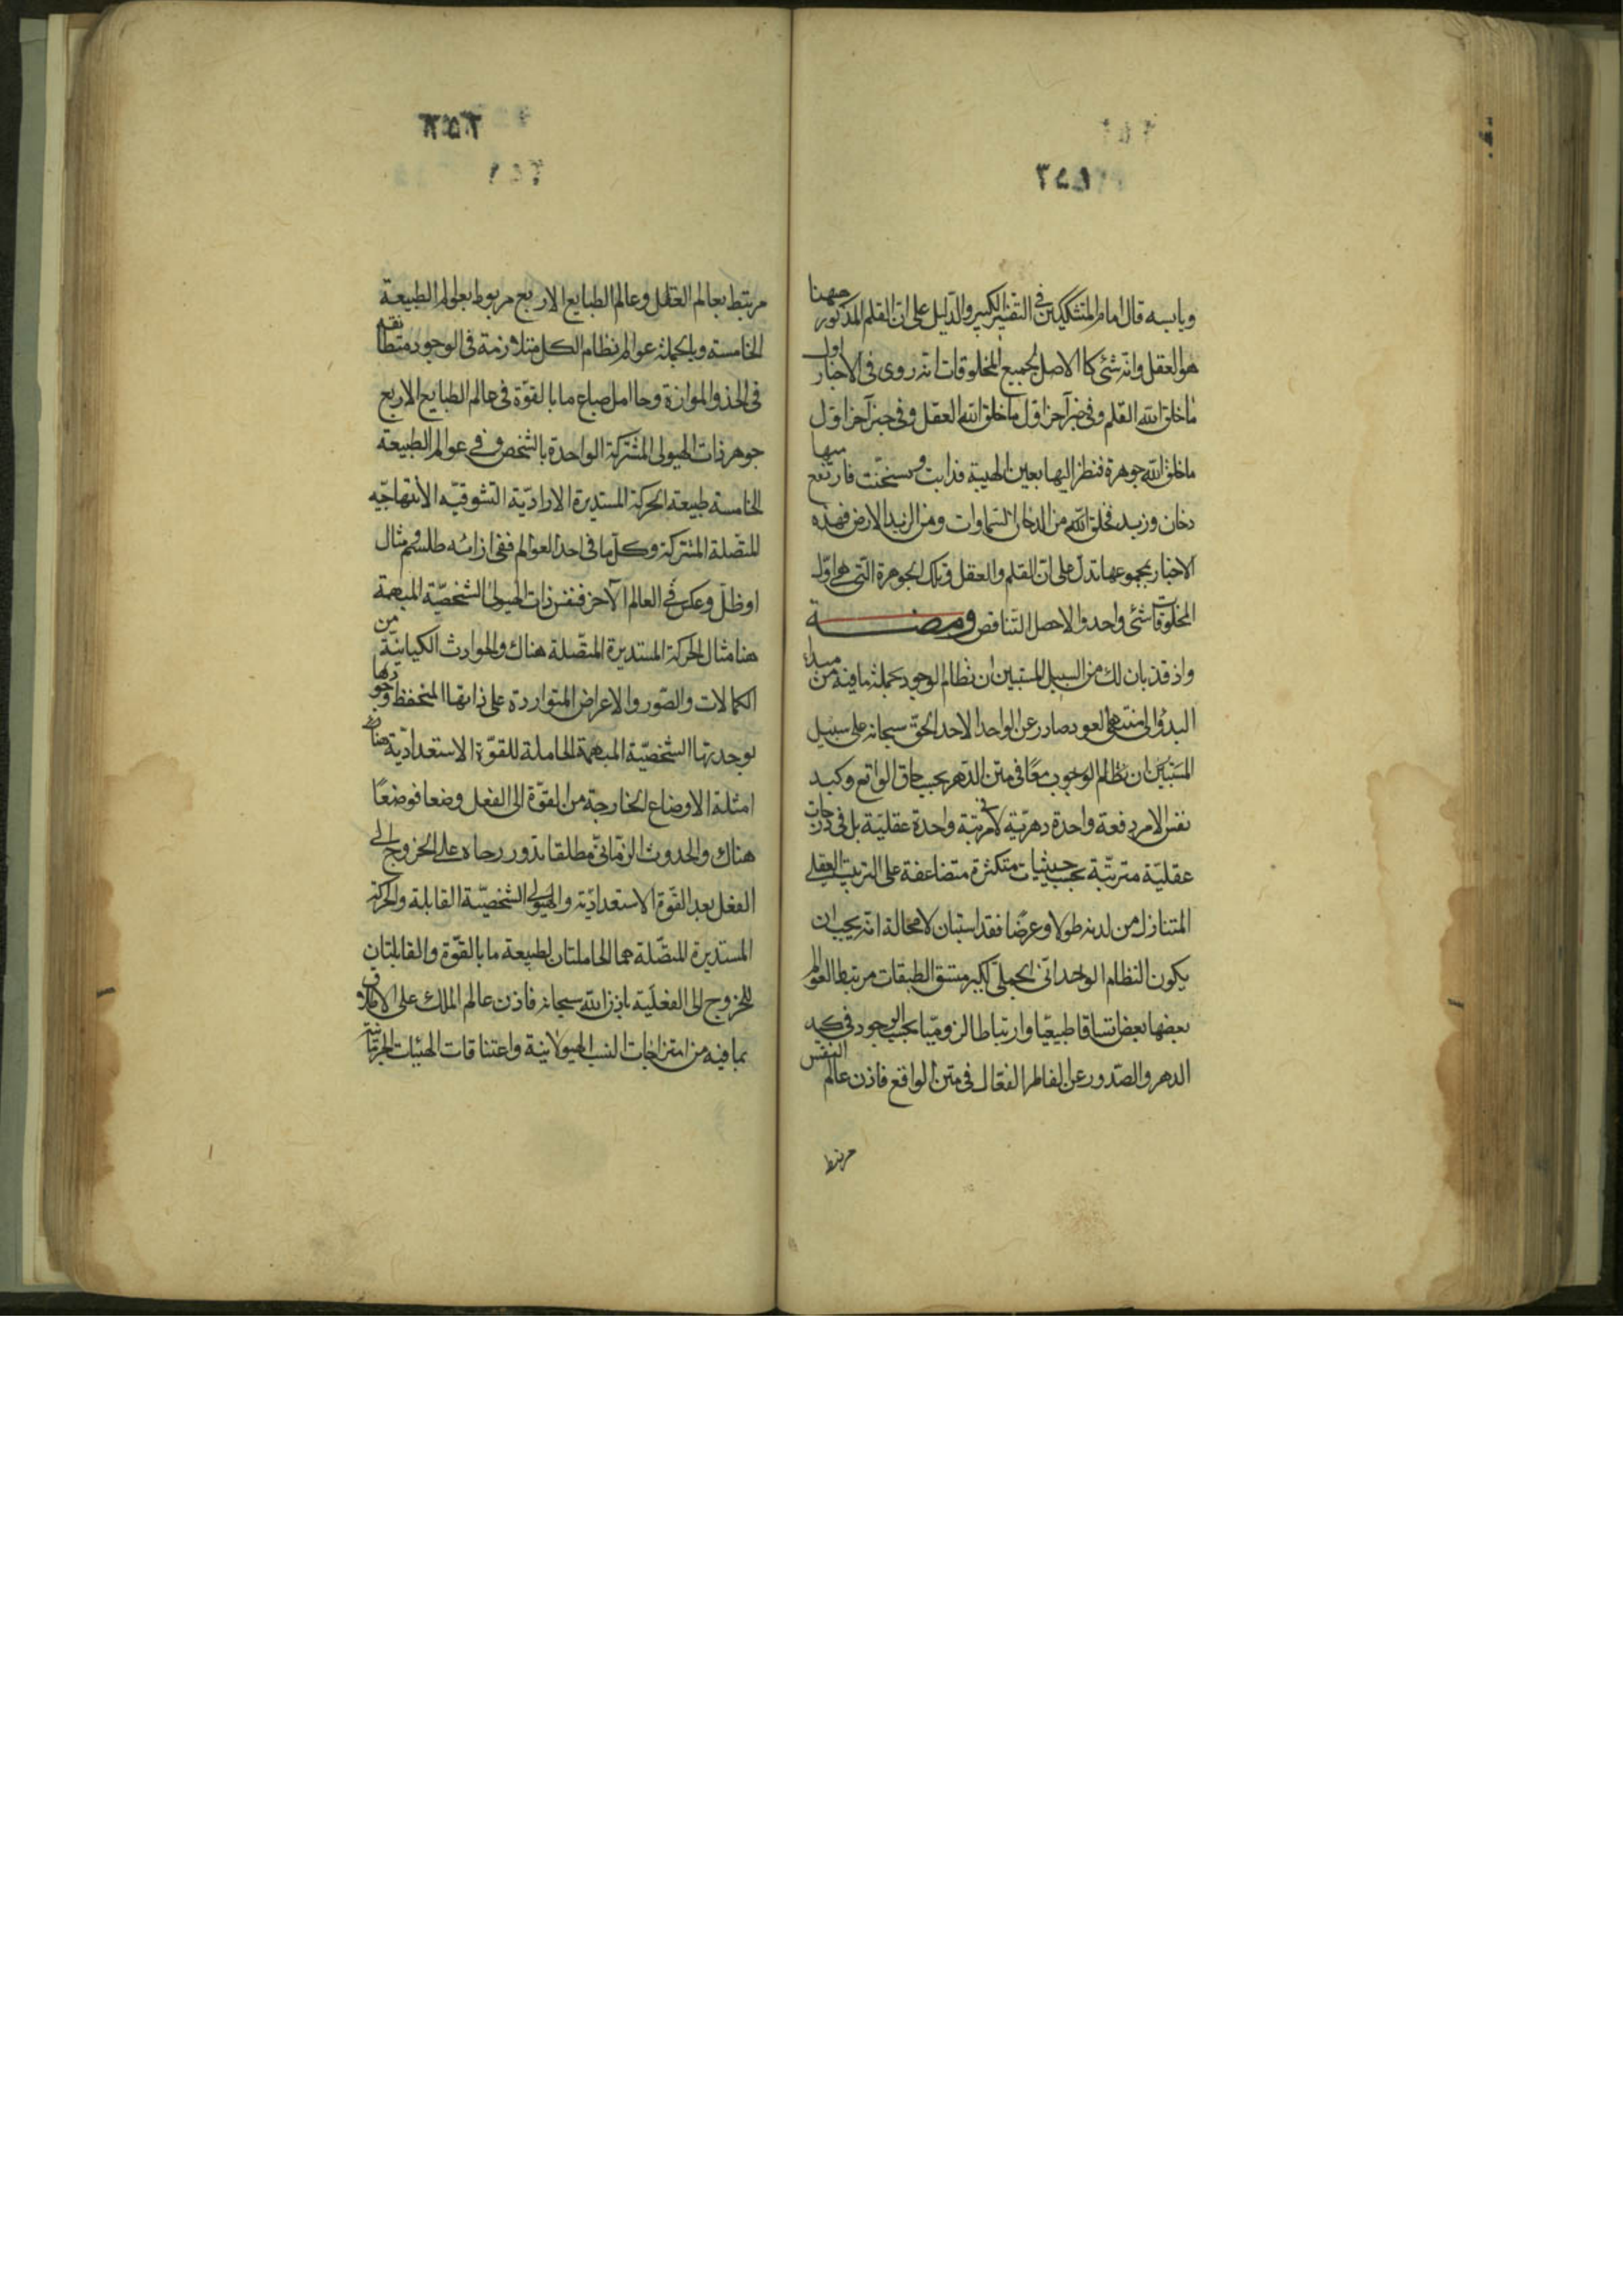 ويابسه قال امام المتشككين في التفسير الكبير والدليل على ان القلم المذكور ههنا
هو العقل وانه شئ كالاصل لجميع المخلوقات انه روى فى الاخبار اول
ما خلق الله القلم وفى خبر آخر اول ما خلق الله العقل وفى خبر آخر اول
ما خلق الله جوهرة فنظر اليها بعين الهيبة فذابت وسخنت فارتفع منها
دخان وزبد فخلق الله من الدخان السماوات ومن الزبد الارض فهذه
الاخبار بمجموعها تدل على ان القلم والعقل وتلك الجوهرة التى هى اول
المخلوقات شئ واحد والا حصل التناقض ومضة
واذ قد بان لك من السبيل المستبين ان نظام الوجود بجملة ما فيه من مبدا
البدؤ الى منتهى العود صادر عن الواحد الاحد الحق سبحانه على سبيل
المستبين ان نظام الوجوب معًا فى متن الدهر بحسب حاق الواقع وكبد
نفس الامر دفعة واحدة دهرية لا فى مرتبة واحدة عقلية بل فى درجات
عقلية مترتبة بحسب حيثيات متكثرة متضاعفة على الترتيب العقلى
المتنازل من لدنه طولا وعرضًا فقد استبان لا محالة انه يجب ان
يكون النظام الوحدانى الجملى الكبير متسق الطبقات مرتبط العوالم
بعضها ببعض تساقا طبيعيًا وارتباطا لزوميًا بحسب الوجود فى كبد
الدهر والصدور عن الفاطر الفعال فى متن الواقع فاذن عالم النفس
مرتبط
٣٥٣
مرتبط بعالم العقل وعالم الطبايع الاربع مربوط بعوالم الطبيعة
الخامسة وبالجملة عوالم نظام الكل متلازمة فى الوجود متطابقة
فى الحذو والموازة وحامل صباع ما بالقوة فى عالم الطبايع الاربع
جوهر ذات الهيولى المشتركة الواحدة بالشخص وفى عوالم الطبيعة
الخامسة طبيعة الحركة المستديرة الارادية التشوقيه الابتهاجيه
المتصلة المشتركة وكل ما فى احد العوالم ففى ازائه طلسم ومثال
او ظل وعكس فى العالم الآخر فنفس ذات الهيولى الشخصية المبهمة
هنا مثال الحركة المستديرة المتصلة هناك والحوادث الكيانية من
الكمالات والصور والاعراض المتواردة على ذاتها المنحفظ وجودها
بوحدتها الشخصية المبهمة الحاملة للقوة الاستعدادية هنا
امثلة الاوضاع الخارجة من القوة الى الفعل وضعا فوضعًا
هناك والحدوث الزمانى مطلقا تدور رحاه على الخروج الى
الفعل بعد القوة الاستعدادية والهيولى الشخصية القابلة والحركة
المستديرة المتصلة هما الحاملتان لطبيعة ما بالقوة والقابلتان
للخروج الى الفعلية باذن الله سبحانه فاذن عالم الملك على الاطلاق
بما فيه من امتزاجات النسب الهيولانية واعتناقات الهيئات الجرمانية